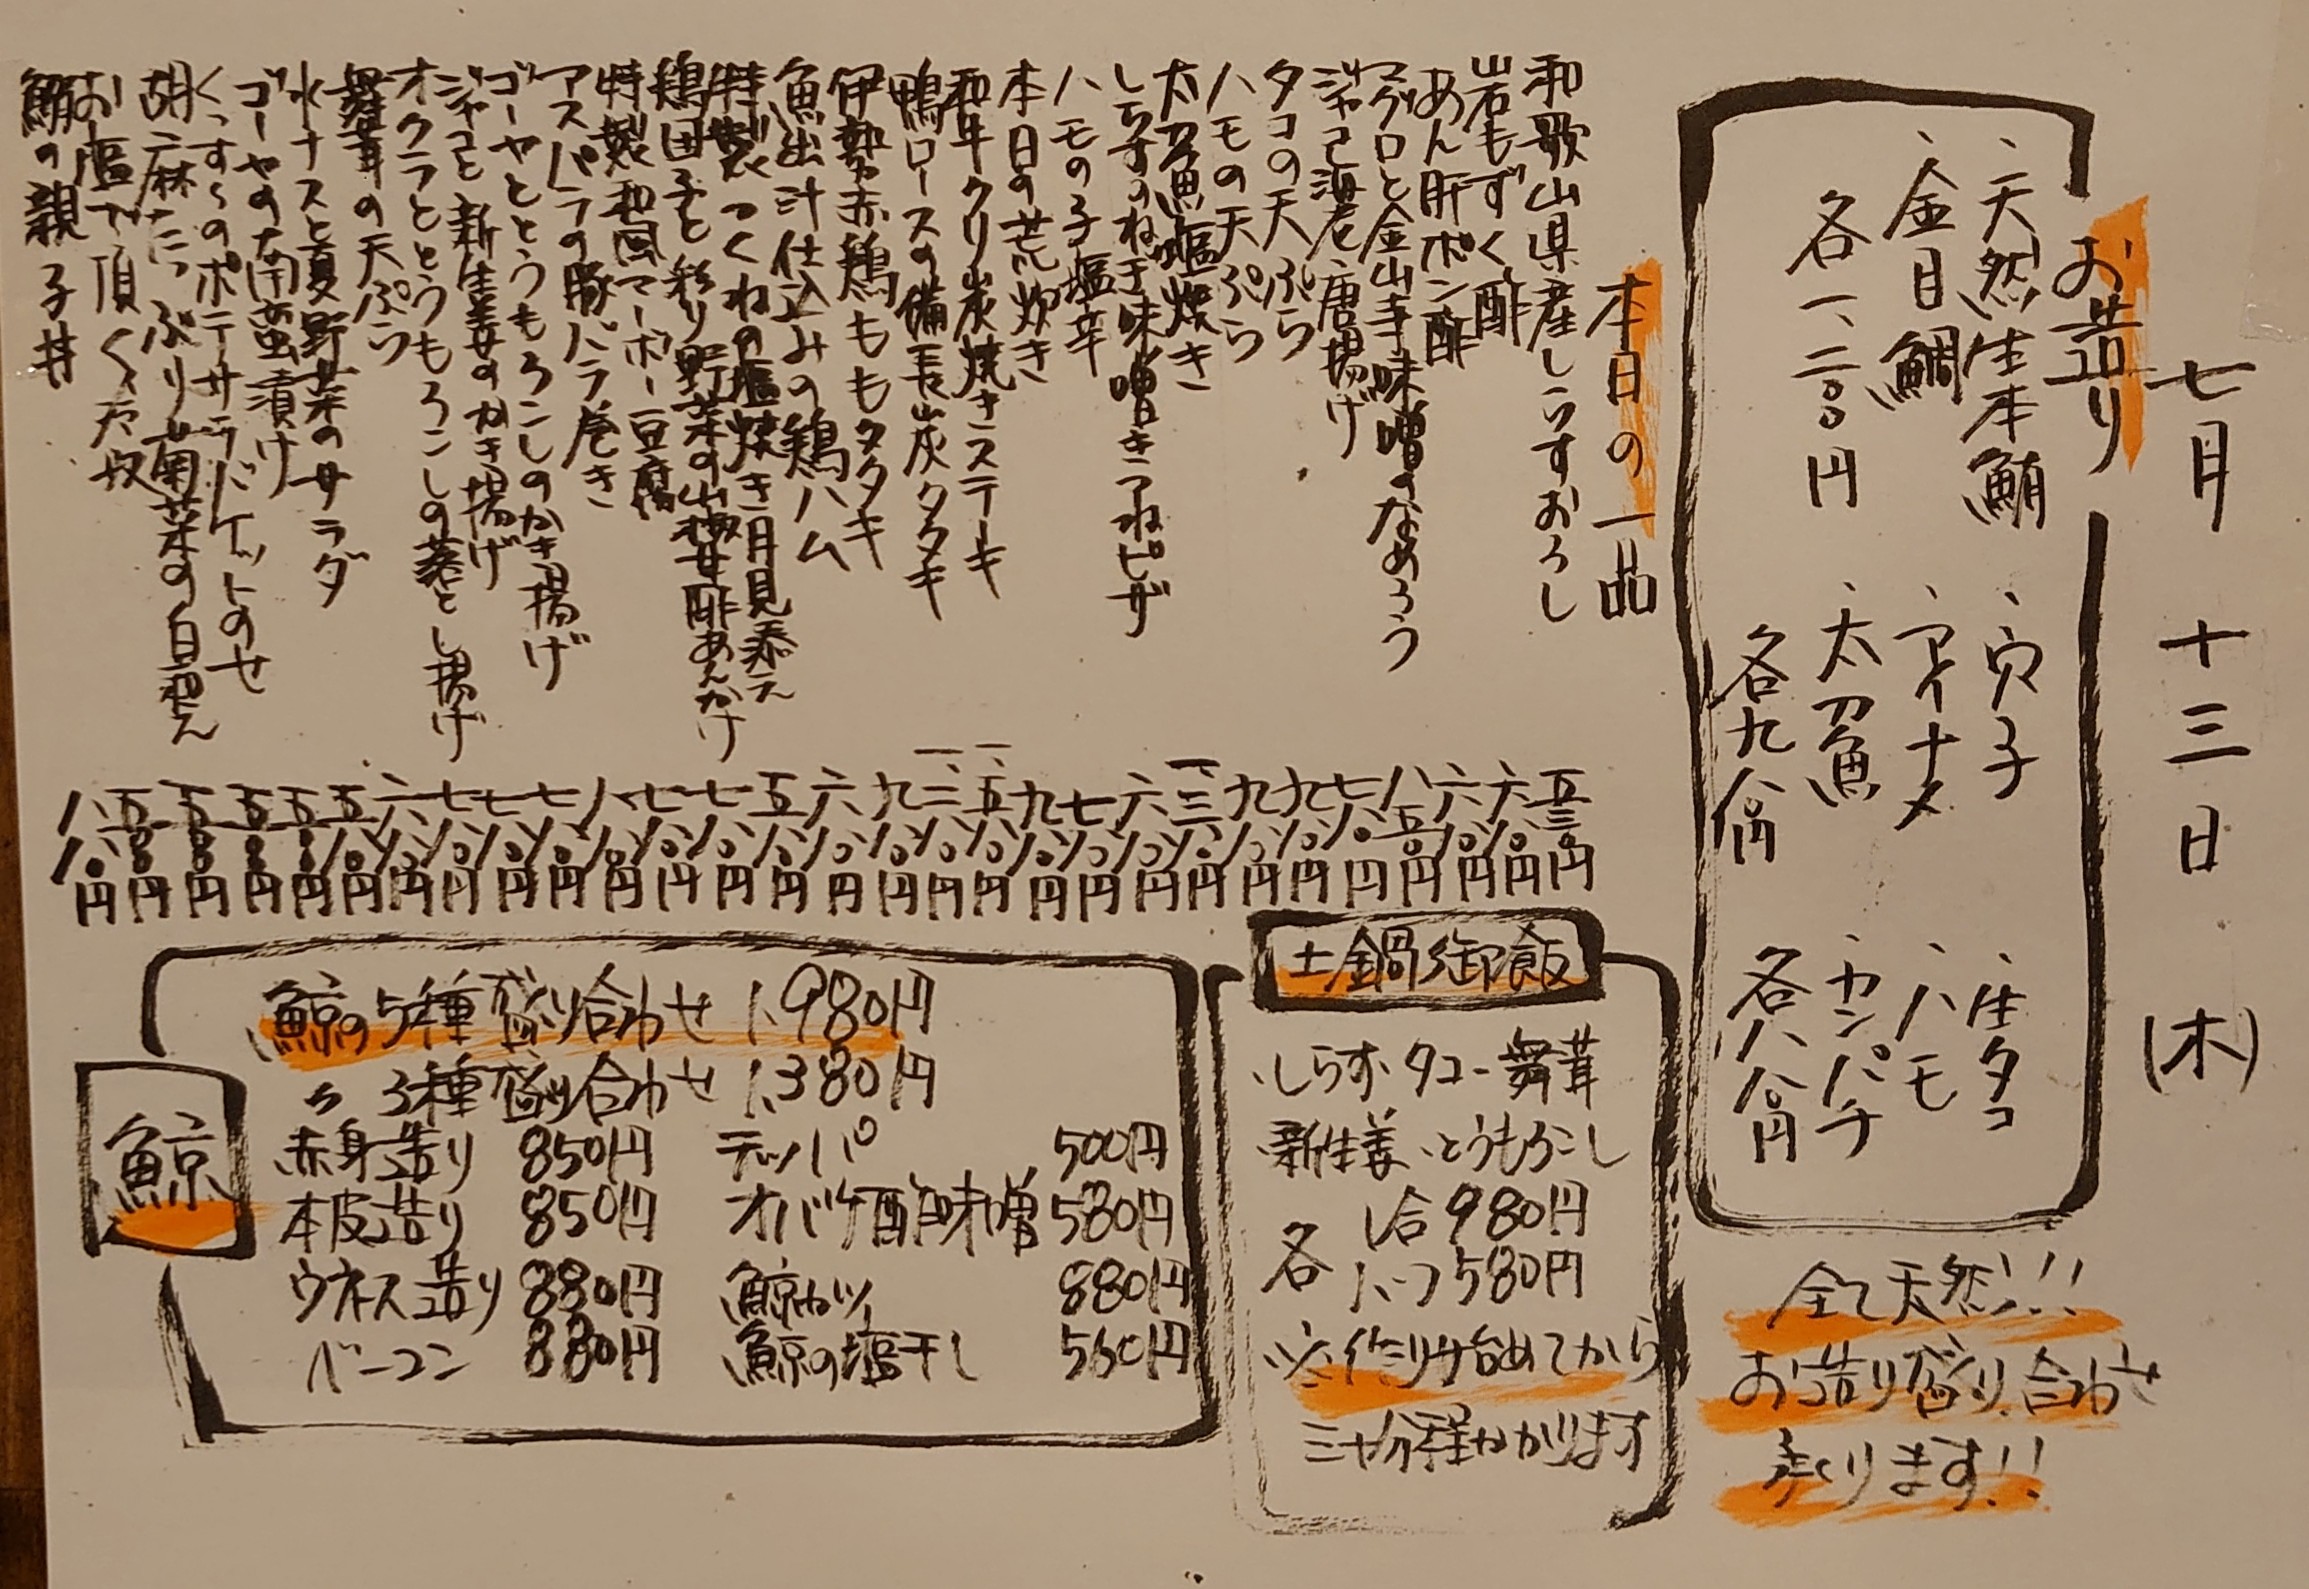 七月十三日(木)
お造り
、天然生本鮪
、金目鯛
各一、二〇〇円
、穴子
、アイナメ
、太刀魚
各九八〇円
、生タコ
、ハモ
、カンパチ
各八八〇円
全て天然!!!
お造り盛り合わせ
承ります!!
本日の一品
和歌山県産しらすおろし 五三〇円
岩もずく酢 六八〇円
あん肝ポン酢 六八〇円
マグロと金山寺味噌のなめろう 八五〇円
ジャコ海老唐揚げ 七八〇円
タコの天ぷら 九八〇円
ハモの天ぷら 九八〇円
太刀魚塩焼き 一、三八〇円
しらすのねぎ味噌きつねピザ 六八〇円
ハモの子塩辛 七八〇円
本日の荒炊き 九八〇円
和牛クリ炭焼きステーキ 一、五八〇円
鴨ロースの備長炭タタキ 一、三八〇円
伊勢赤鶏ももタタキ 九八〇円
魚出汁仕込みの鶏ハム 六八〇円
特製つくねの塩焼き月見添え 五八〇円
鶏団子と彩り野菜の山椒甘酢あんかけ 七八〇円
特製和風マーボー豆腐 七八〇円
アスパラの豚バラ巻き 八八〇円
ゴーヤととうもろこしのかき揚げ 七八〇円
ジャコと新生姜のかき揚げ 七八〇円
オクラととうもろこしの落とし揚げ 七八〇円
舞茸の天ぷら 六八〇円
水ナスと夏野菜のサラダ 五八〇円
ゴーヤの南蛮漬け 五〇〇円
くっすぐのポテサラドケットのせ 五〇〇円
胡麻たっぷり菊菜の白和え 五〇〇円
お塩で頂く冷奴 五〇〇円
鮪の親子丼 八八〇円
土鍋御飯
・しらす・タコ・舞茸
・新生姜・とうもろこし
各 1合980円
ハーフ580円
※作り始めてから
三十分程かかります
鯨
鯨の5種盛り合わせ 1,980円
〃 3種盛り合わせ 1,380円
赤身造り 850円 テッパ 500円
本皮造り 850円 オバケ酢味噌 580円
ウネス造り 880円 鯨カツ 880円
ベーコン 880円 鯨の塩干し 560円